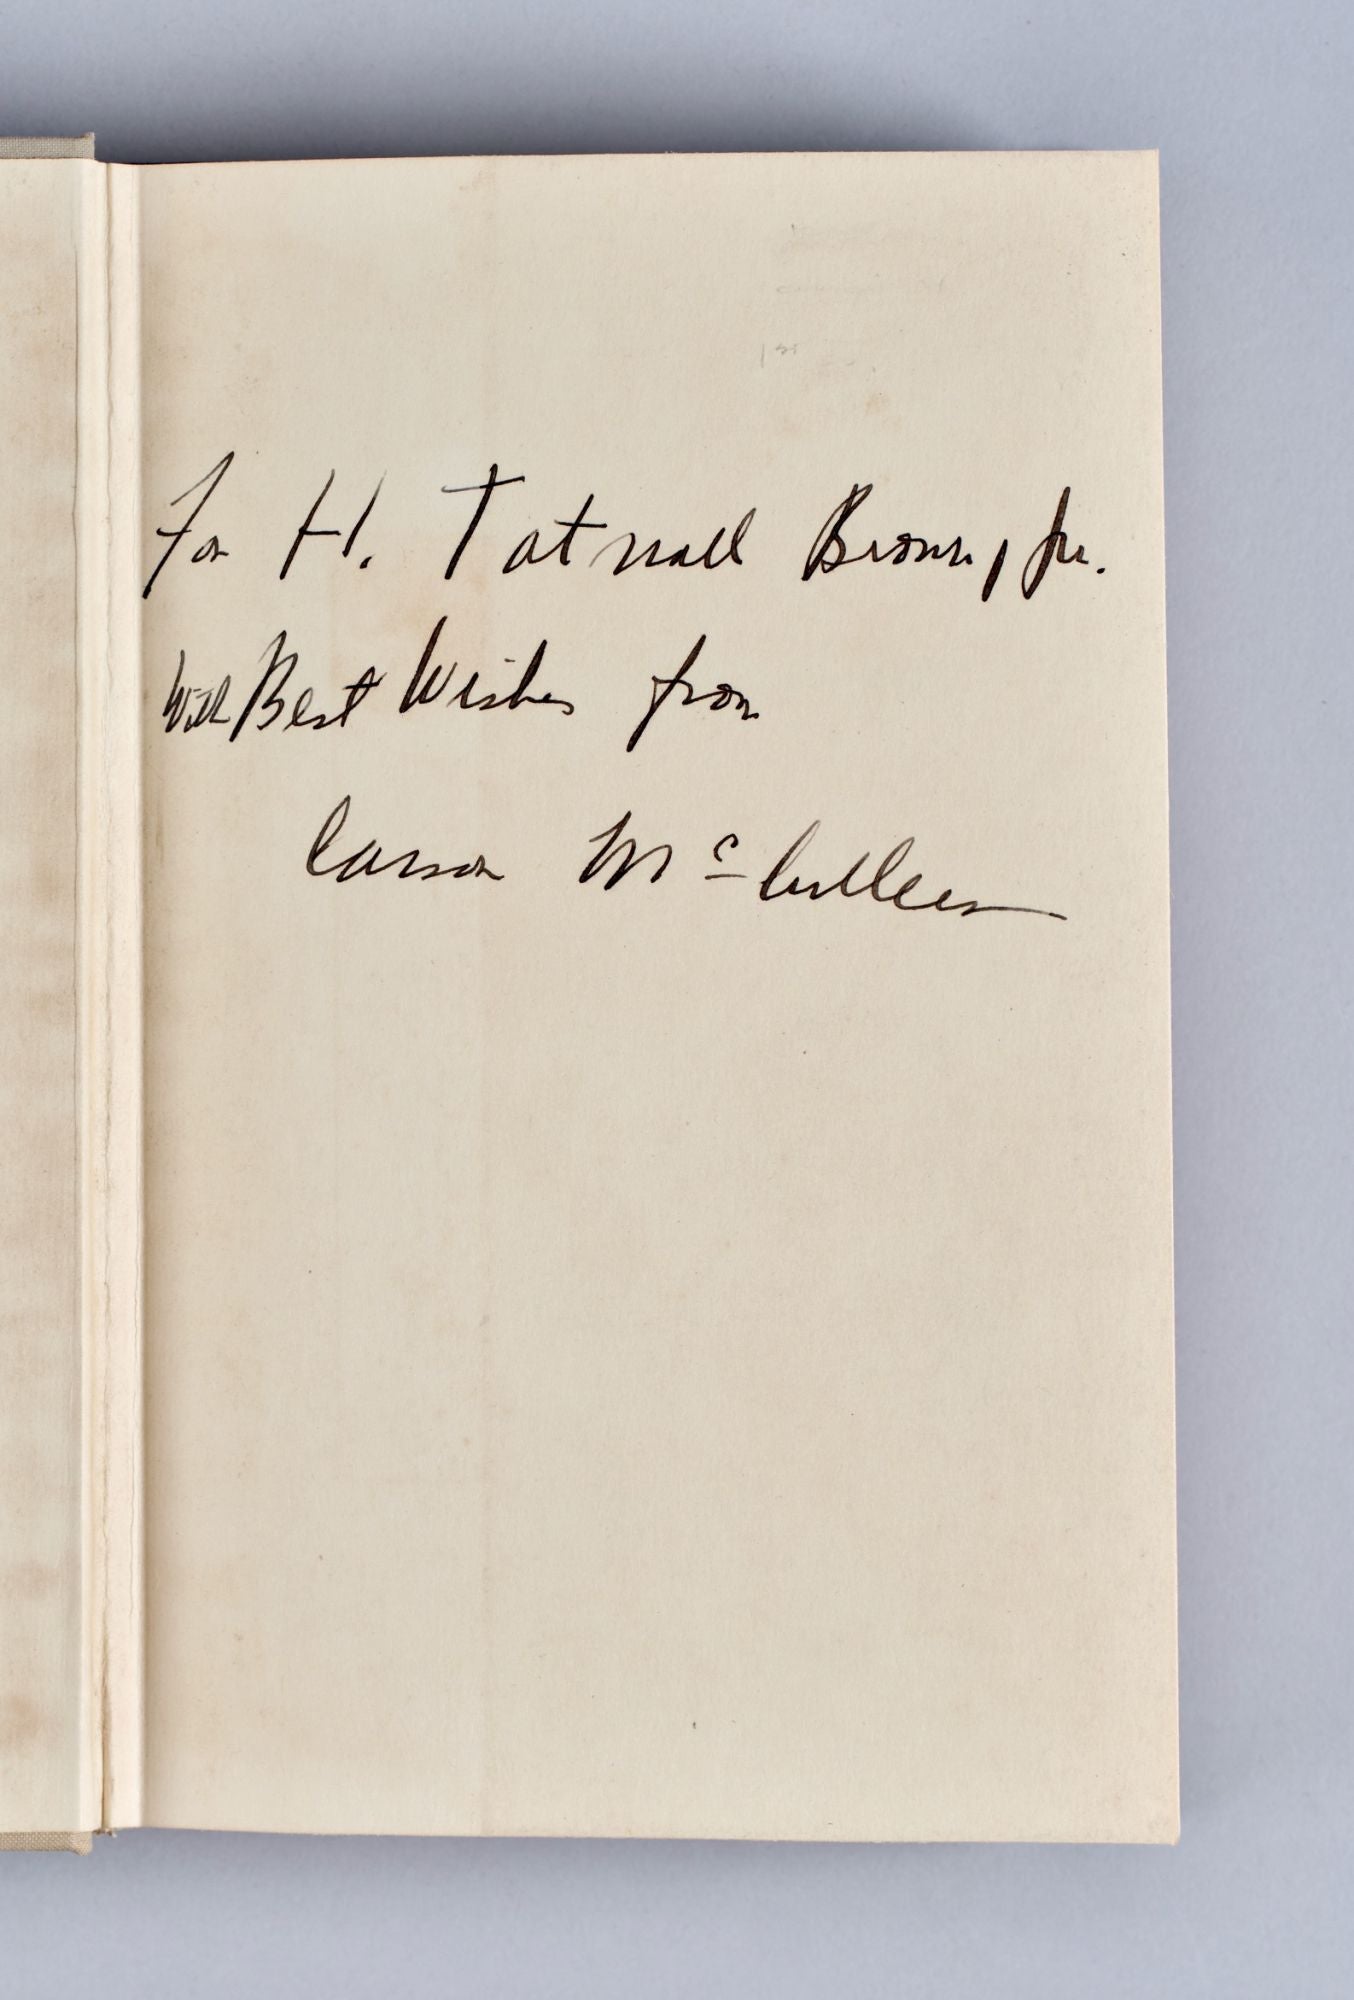 For H. Tatnall Brown, Jr.
With Best Wishes from
Carson McCullers